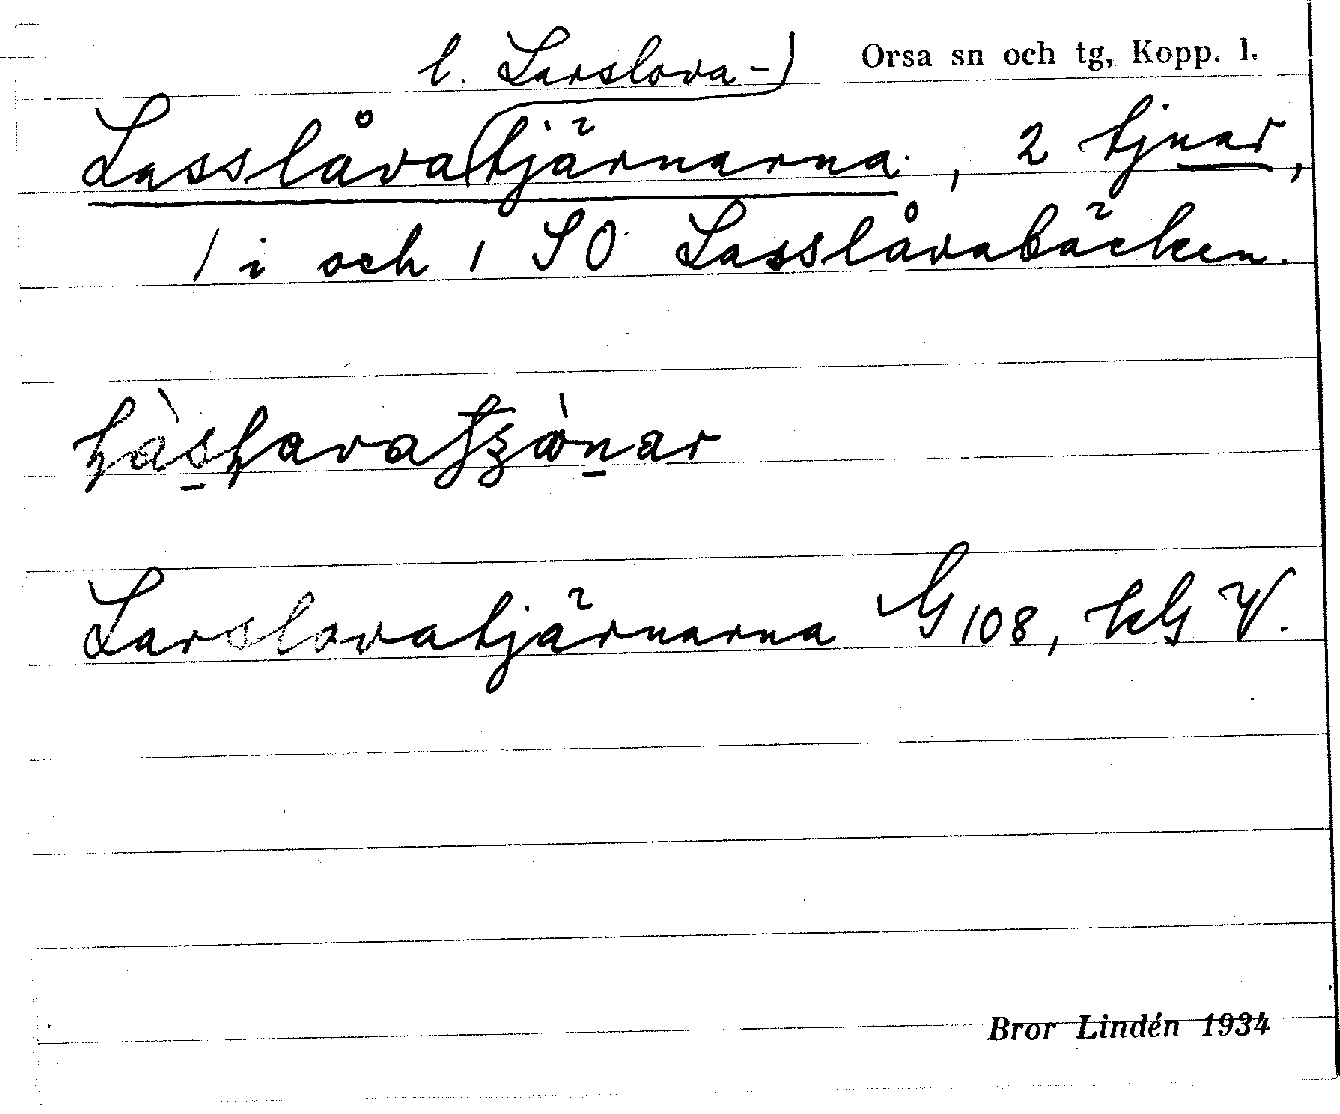 l. Larslova-)
Orsa sn och tg, Kopp. l.
Lasslåva(tjärnarna, 2 tjnar,
1 i och 1 SO Lasslåvabäcken.
Larslovatjärnarna G 108, kG V.
Bror Lindén 1934